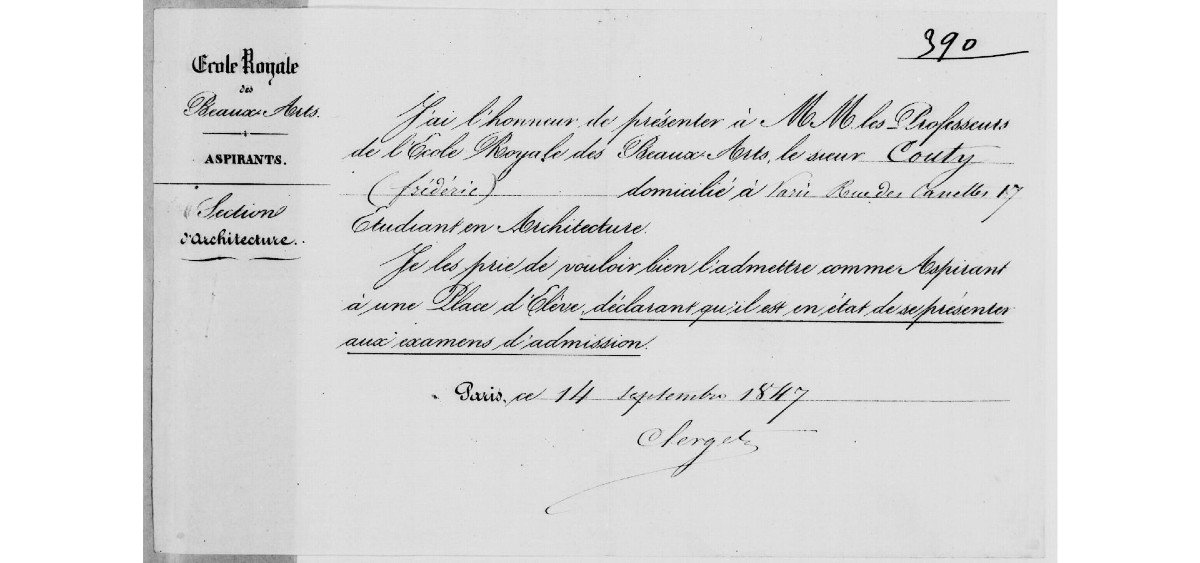 390
Ecole Royale
des
Beaux-Arts.
ASPIRANTS.
Section
d'Architecture.
J'ai l'honneur de présenter à M M les Professeurs
de l'Ecole Royale des Beaux Arts, le sieur Couty
(frédéric) domicilié à Paris Rue des Canettes 17
Etudiant en Architecture.
Je les prie de vouloir bien l'admettre comme Aspirant
à une Place d'Elève, déclarant qu'il est en état de se présenter
aux examens d'admission.
Paris, ce 14 septembre 1847
Clerget